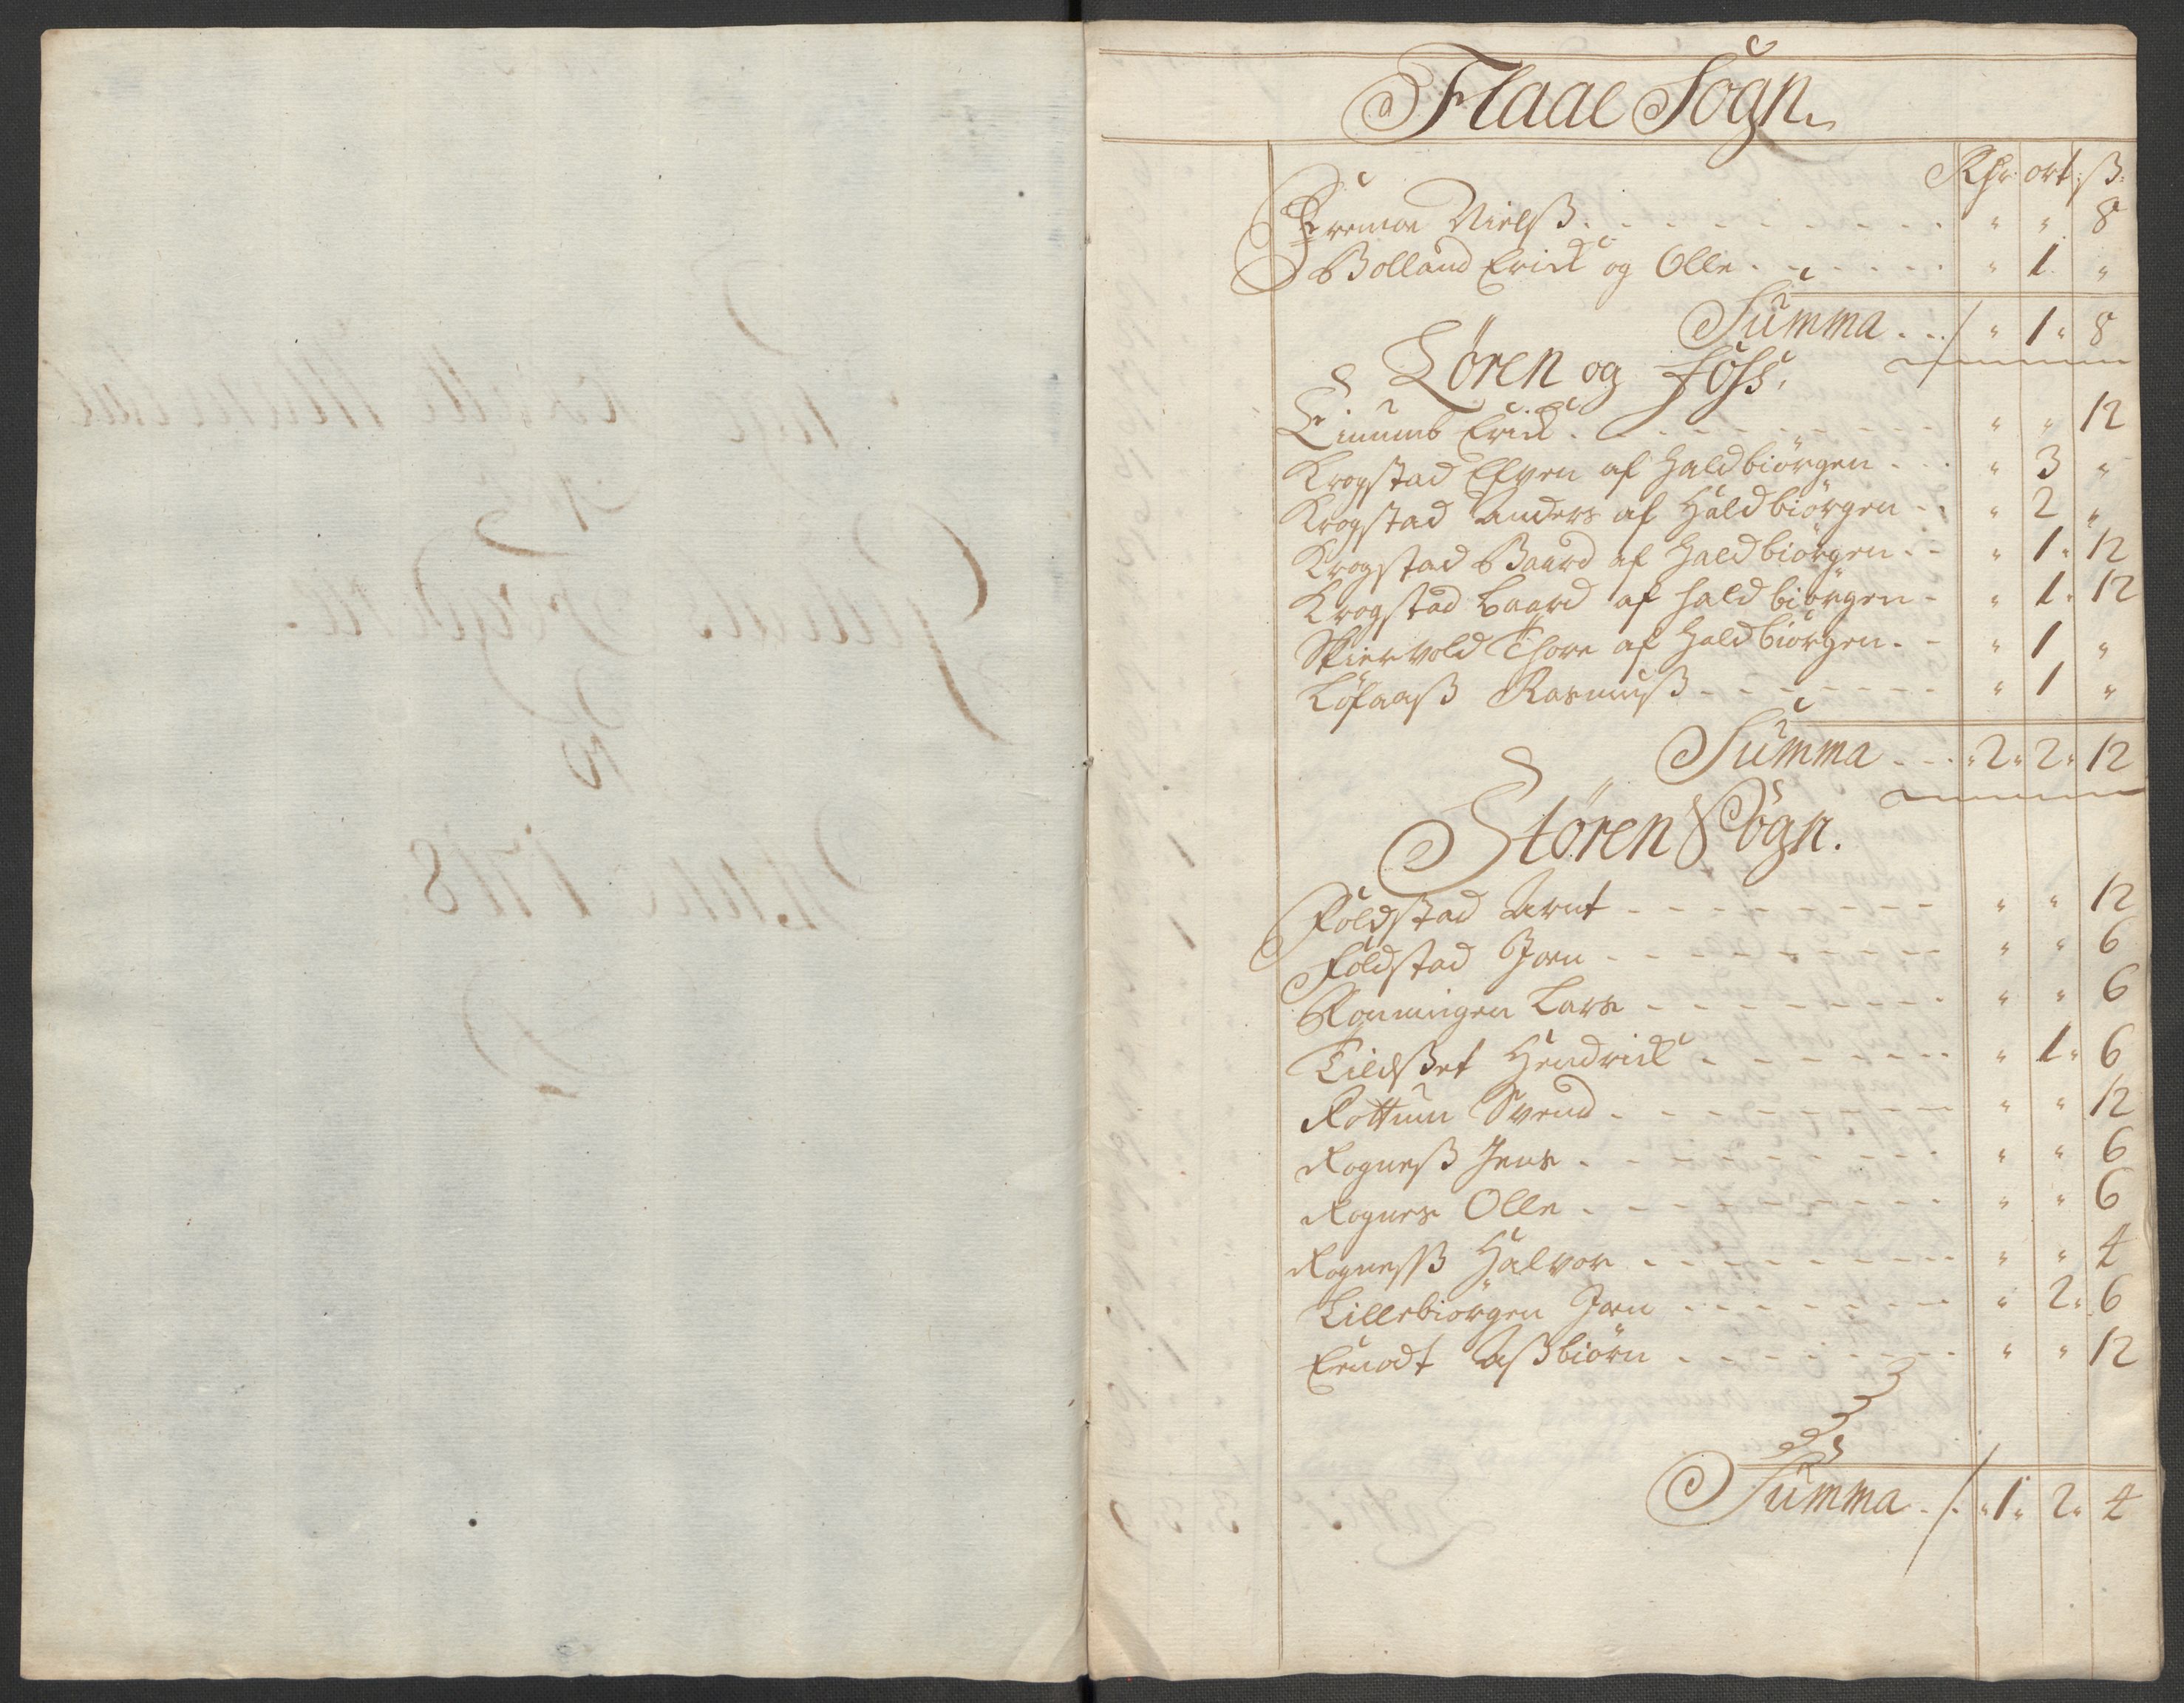 Flaae Sogn.
Rdr ort ß:
Fremoe Nielß . . . " " 8
Bolland Erick og Olle . . . " 1 "
Summa . . " 1 " 8
Løren og Foss.
Linumb Erick . . . " " 12
Krogstad Esven af Haldbiørgen . . . " 3 "
Krogstad Anders af Haldbiørgen . . " 2 "
Krogstad Baard af Haldbiørgen . . " 1 " 12
Krogstad Baard af Haldbiørgen . " 1 " 12
Skiervold Thore af Haldbiørgen . . " 1 "
Løfaaß Rasmuß . . . " 1 "
Summa . . . " 2 " 2 " 12
Støren Sogn.
Foldstad Arnt . . . " " 12
Foldstad Joen . . . " " 6
Rønningen Lars . . . " " 6
Tildßet Hendrick . . . " 1 " 6
Rottum Svend . . . " " 12
Rogneß Jens . . . " " 6
Rognes Olle . . . " " 6
Rogneß Halvor . . . " " 4
Lillebiørgen Joen . . . " 2 " 6
Enodt Aßbiørn . . . " " 12
Summa . . " 1 " 2 " 4